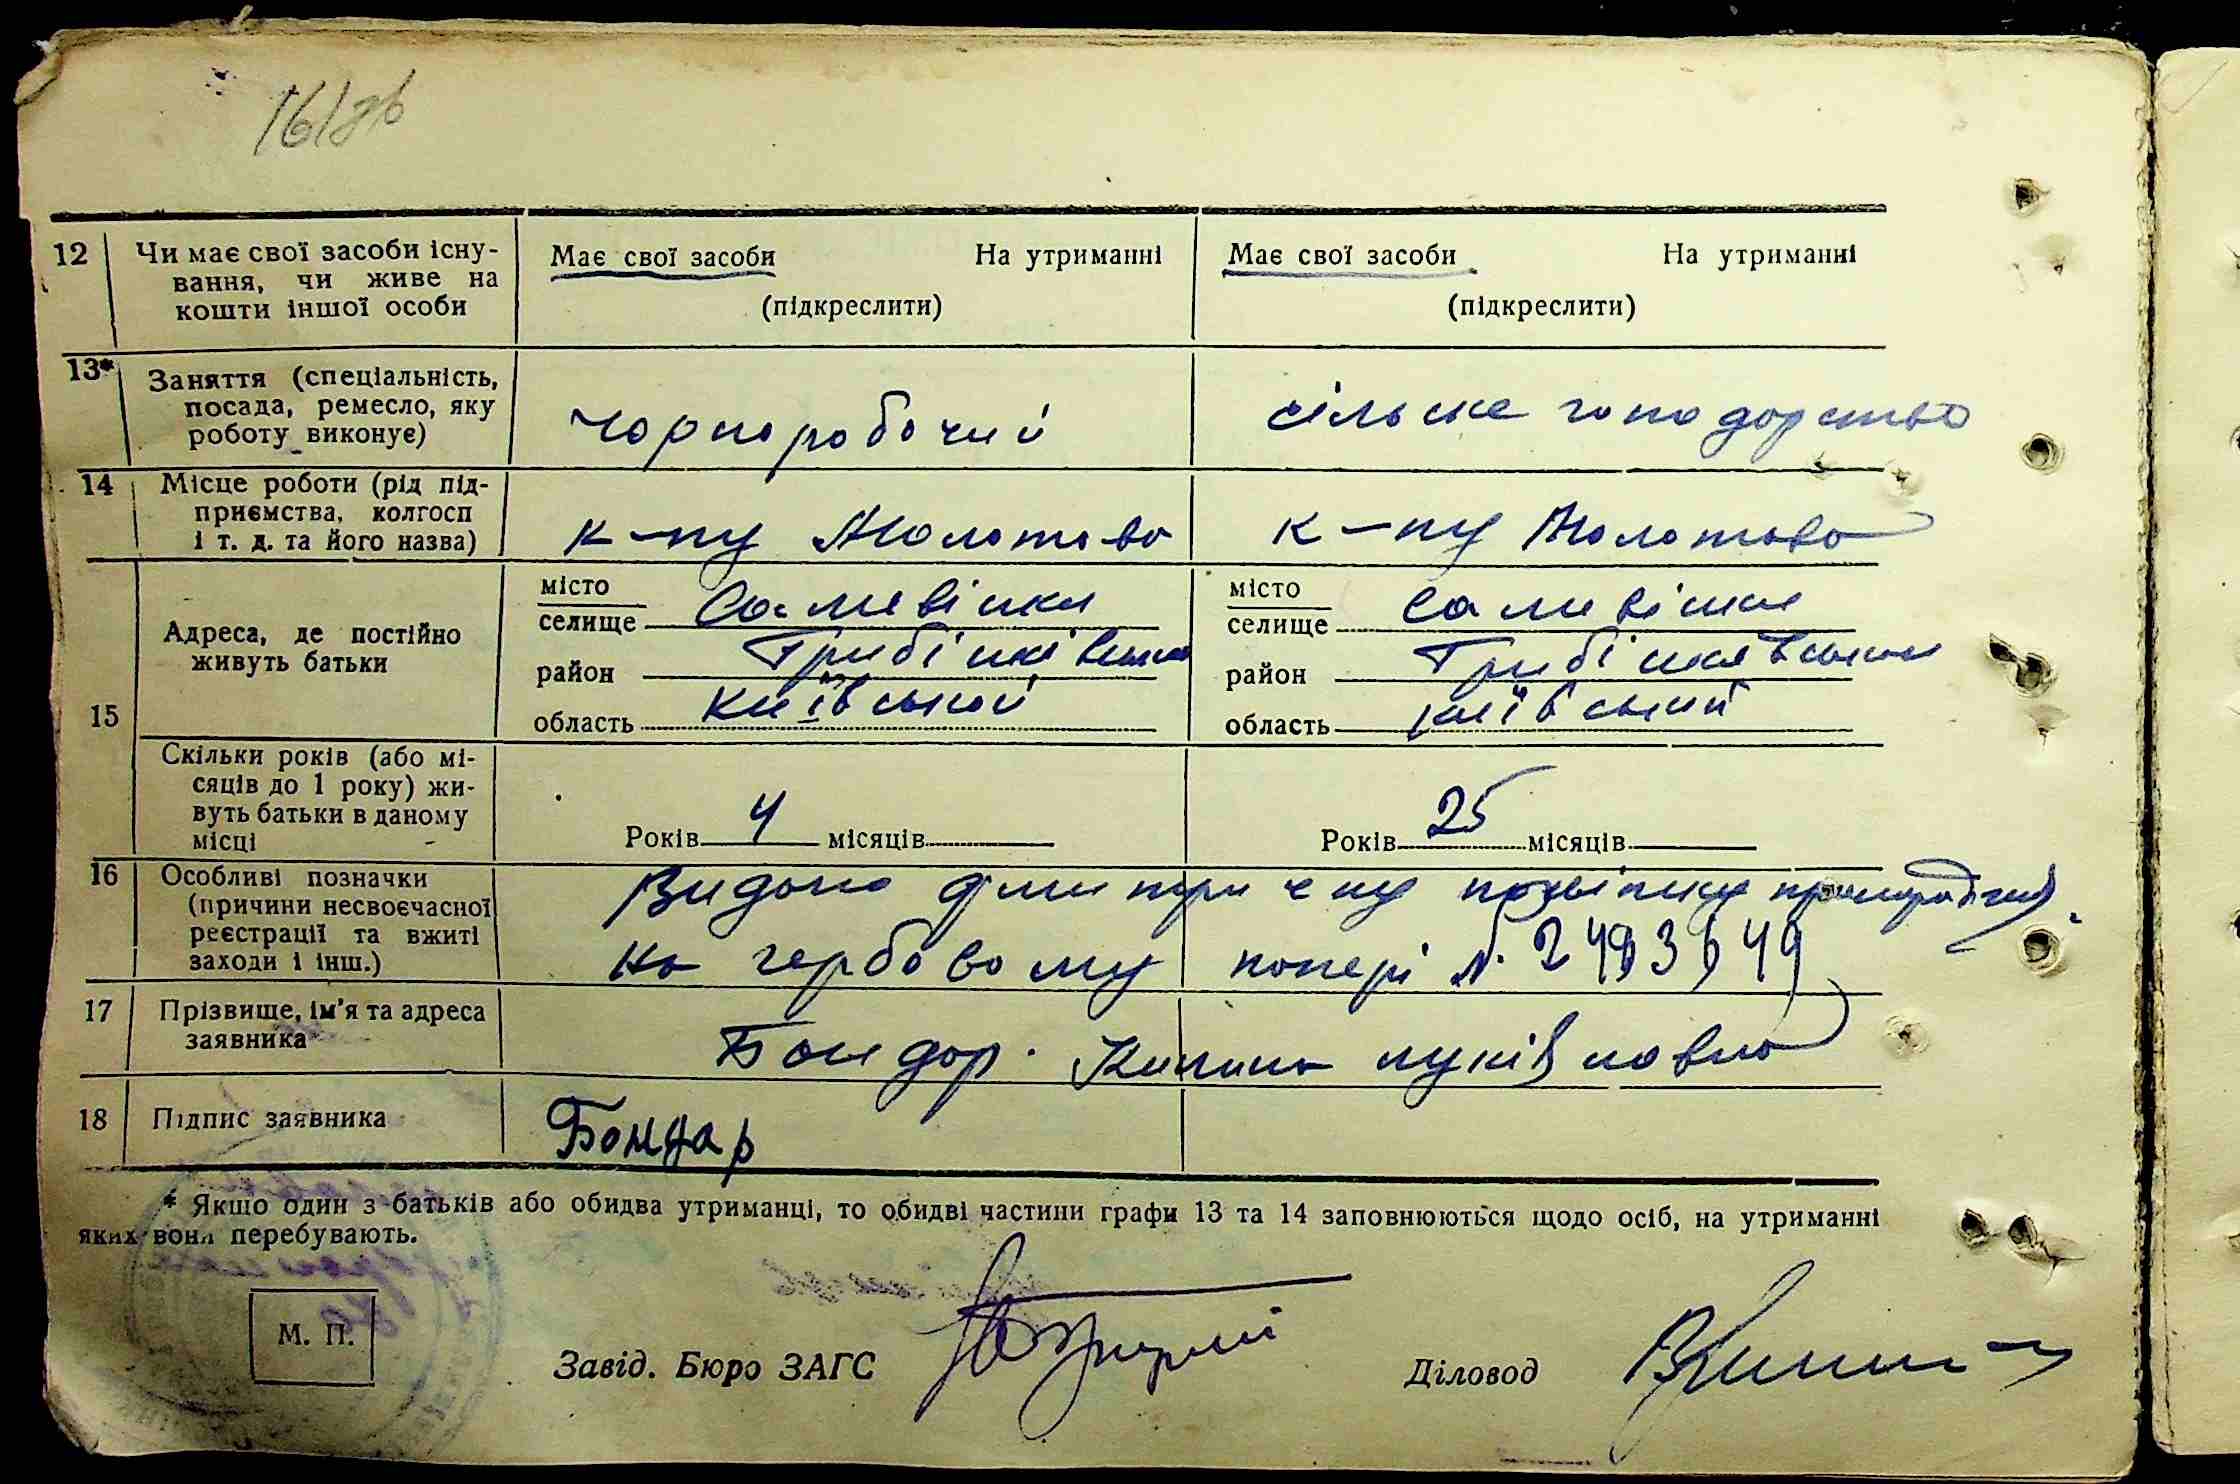 161зв
12 Чи має свої засоби існу-
вання, чи живе на
кошти іншої особи
Має свої засоби На утриманні
(підкреслити)
Має свої засоби На утриманні
(підкреслити)
13* Заняття (спеціальність,
посада, ремесло, яку
роботу виконує)
Чорноробочий
сільське господарство
14 Місце роботи (рід під-
приємства, колгосп
і т. д. та його назва)
к-пу Молотова
к-пу Молотова
15 Адреса, де постійно
живуть батьки
місто
селище Саливінки
район Грибінківський
область Київський
місто
селище Саливінки
район Грибінківський
область Київський
Скільки років (або мі-
сяців до 1 року) жи-
вуть батьки в даному
місці
Років 4 місяців
Років 25 місяців
16 Особливі позначки
(причини несвоєчасної
реєстрації та вжиті
заходи і інш.)
Видано
на гербовому папері №
17 Прізвище, ім'я та адреса
заявника
Бондар Килина
18 Підпис заявника
Бондар
* Якщо один з батьків або обидва утриманці, то обидві частини графи 13 та 14 заповнюються щодо осіб, на утриманні
яких вони перебувають.
М. П.
Завід. Бюро ЗАГС
Діловод